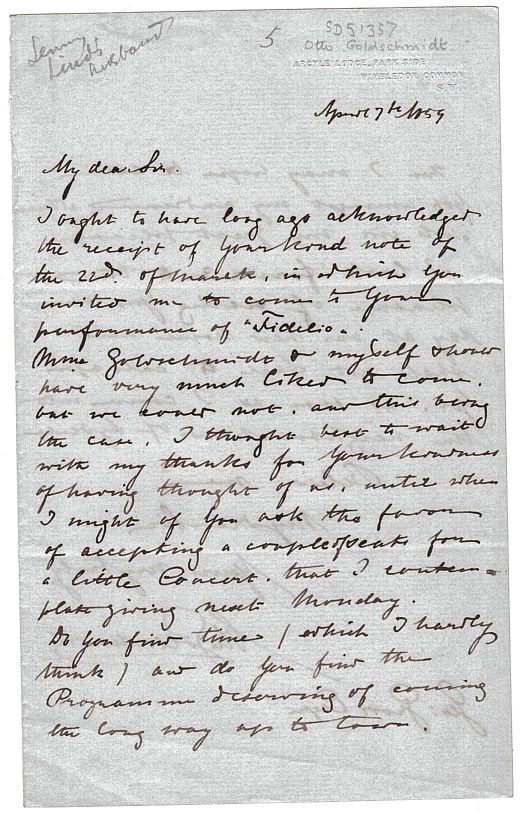 Jenny
Lind's
husband
5
SD51357
Otto Goldschmidt
ARGYLE LODGE, PARK SIDE
WIMBLEDON COMMON
S.W.
April 7th 1859
My dear Sir.
I ought to have long ago acknowledged
the receipt of your kind note of
the 22d. of March, in which you
invited me to come to your
performance of "Fidelio".
Mme Goldschmidt & myself should
have very much liked to come,
but we could not, and this being
the case, I thought best to wait
with my thanks for your kindness
of having thought of us, until when
I might of you ask the favour
of accepting a couple of seats for
a little Concert, that I contem=
plate giving next Monday.
Do you find time (which I hardly
think) and do you find the
Programme deserving of coming
the long way up to town.